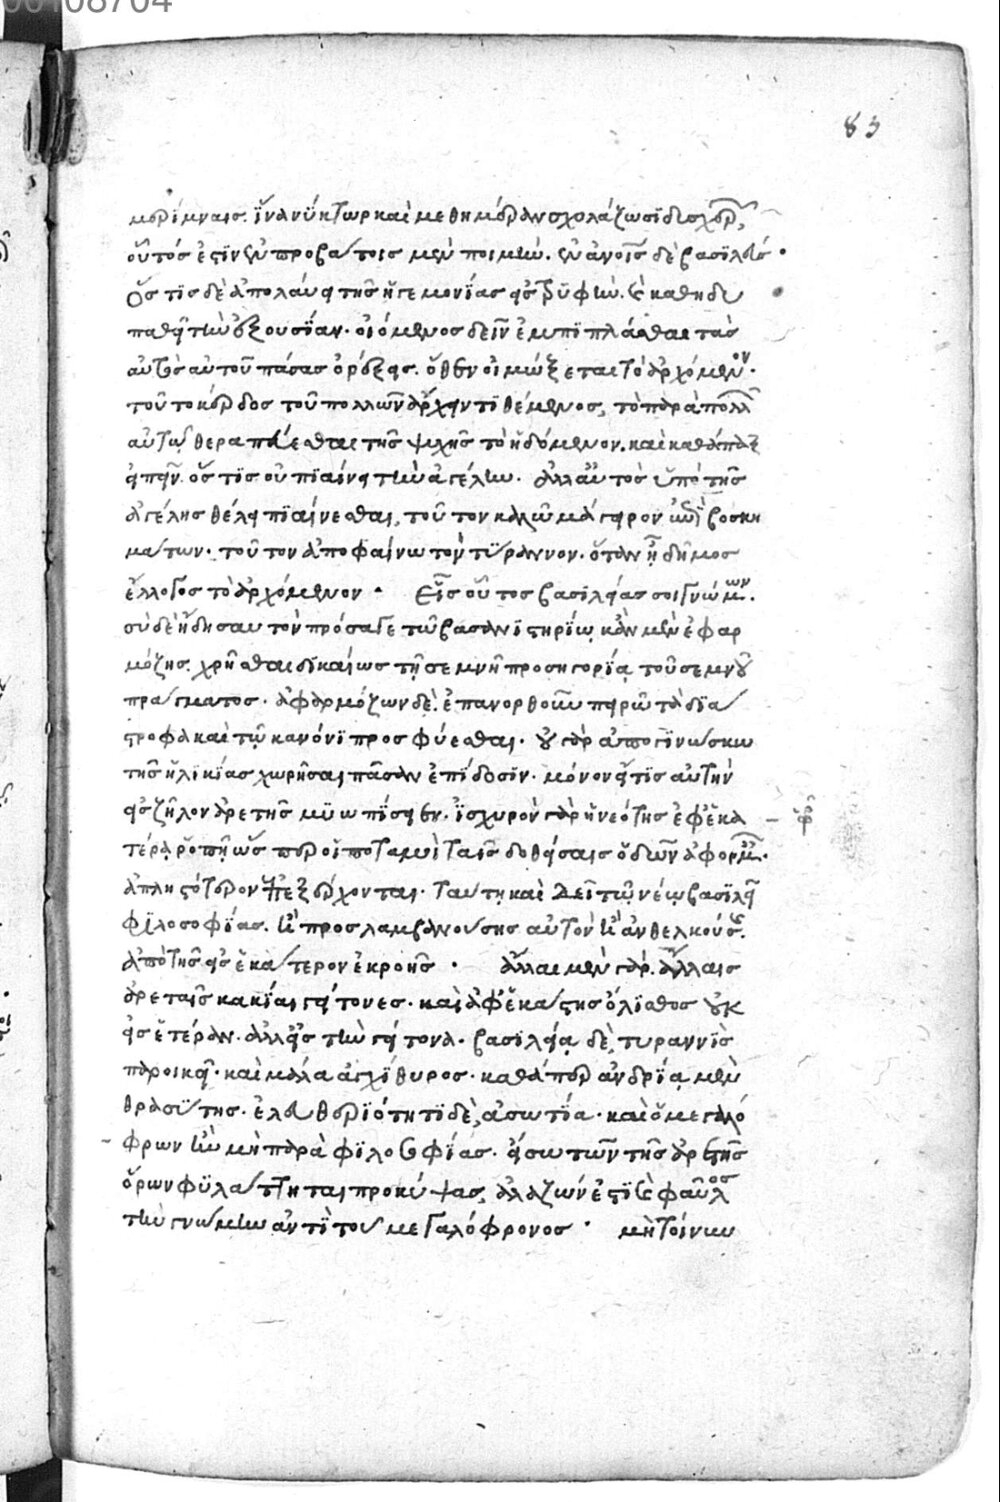 83
μερίμναις. ἵνα νύκτωρ καὶ μεθημέραν σχολάζωσι δυσχερ
οὗτός ἐστιν ἐν προβάτοις μὲν ποιμήν. ἐν ἀνοις δὲ βασιλεύς.
ὅς τις δὲ ἀπολαύει τῆς ἡγεμονίας εἰς τρυφήν. καὶ καθηδυ
παθεῖ τὴν ἐξουσίαν. οἰόμενος δεῖν ἐμπίπλασθαι τὰς
αὐτὸς αὑτοῦ πάσας ὀρέξεις. ὅθεν οἰμώξεται τὸ ἀρχόμενον.
τοῦτο κέρδος τοῦ πολλῶν ἄρχειν τιθέμενος, τὸ παρὰ πολλ
αὐτῷ θεραπεύεσθαι τῆς ψυχῆς τὸ ἡδόμενον. καὶ καθάπαξ
εἰπεῖν. ὅστις οὐ πιαίνει τὴν ἀγέλην. ἀλλ' αὐτὸς ὑπὸ τῆς
ἀγέλης θέλει πιαίνεσθαι, τοῦτον καλῶ μάγειρον ἐν βοσκη
μάτων. τοῦτον ἀποφαίνω τὸν τύραννον. ὅταν ᾖ δῆμος
ἔλλογος τὸ ἀρχόμενον. εἷς οὗτος βασιλείας σοι γνώμων.
σὺ δὲ ἤδη σαυτὸν πρόσαγε τῷ βασανιστηρίῳ κἂν μὲν ἐφαρ
μόζῃς. χρῆσθαι δικαίως τῇ σεμνῇ προσηγορίᾳ τοῦ σεμνοῦ
πράγματος. ἀφαρμόζων δὲ. ἐπανορθοῦν πειρῶ τὰ διά
στροφα καὶ τῷ κανόνι προσφύεσθαι. οὐ γὰρ ἀπογινώσκω
τῆς ἡλικίας χωρῆσαι πᾶσαν ἐπίδοσιν. μόνον εἴ τις αὐτὴν
εἰς ζῆλον ἀρετῆς μυωπίσειεν. ἰσχυρὸν γὰρ ἡ νεότης ἐφ' ἑκα
τέρᾳ ῥοπῇ ὥσπερ οἱ ποταμοὶ ταῖς δοθείσαις ὁδῶν ἀφορμ.
ἀπληστότερον ἐπεξέρχονται. ταύτῃ καὶ δεῖ τῷ νέῳ βασιλεῖ
φιλοσοφίας. καὶ προσλαμβανούσης αὐτὸν καὶ ἀνθελκούσ.
ἀπὸ τῆς εἰς ἑκάτερον ἐκροῆς. ἄλλαι μὲν γὰρ. ἄλλαις
ἀρεταῖς κακίαι γείτονες. καὶ ἀφ' ἑκάστης ὄλισθος οὐκ
εἰς ἑτέραν. ἀλλ' εἰς τὴν γείτονα. βασιλείᾳ δὲ, τυραννὶς
παροικεῖ. καὶ μάλα ἀγχίθυρος. καθάπερ ἀνδρίᾳ μὲν
θρασύτης. ἐλευθεριότητι δὲ, ἀσωτία. καὶ ὁ μεγαλό
φρων ἢν μὴ παρὰ φιλοσοφίας. εἴσω τῶν τῆς ἀρετῆς
ὅρων φυλάττηται προκύψας, ἀλαζών ἐστι καὶ φαῦλος
τὴν γνώμην ἀντὶ τοῦ μεγαλόφρονος. μὴ τοίνυν